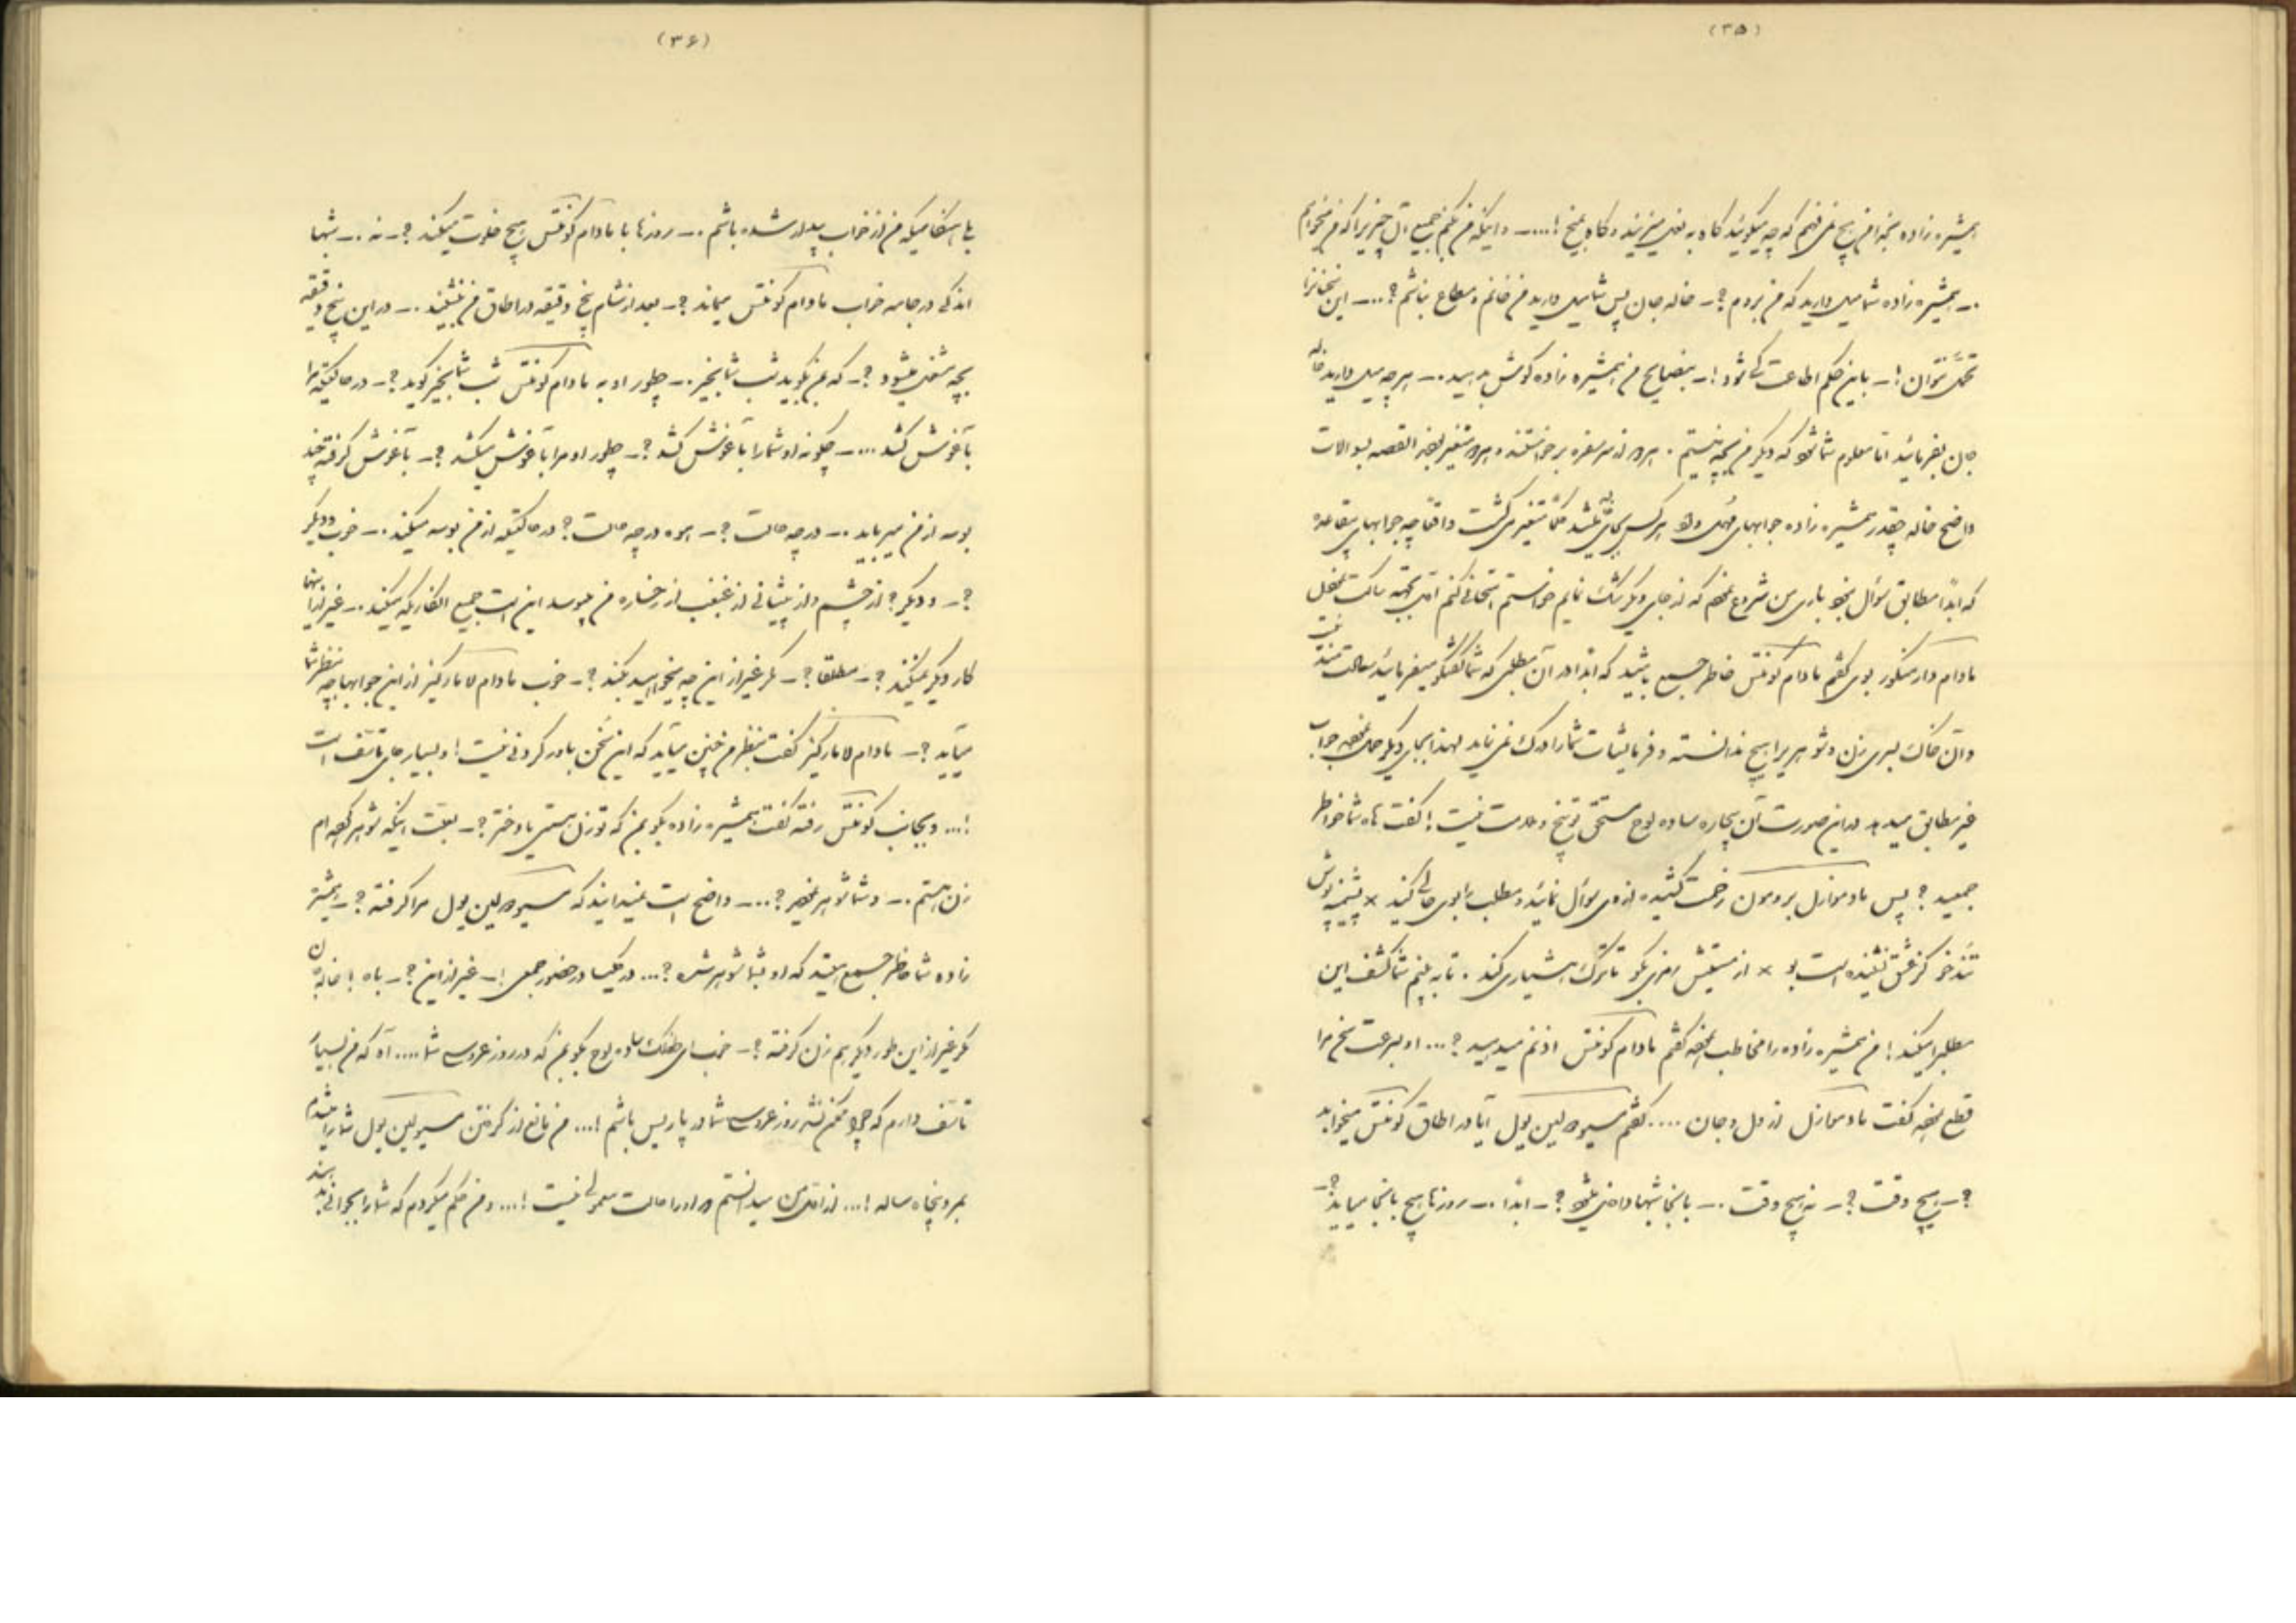 (۳۵)
همشیره زاده بخدا من هیچ نمی فهمم که چه میگوئید گاه به نعل میزنید و گاه به میخ !....ـ و اینکه من بکنم جمیع آن چیزیرا که من میخواهم
.ـ همشیره زاده شما میل دارید که من بروم ?ـ خاله جان پس شما میل دارید من خانم و مطاع نباشم ?...ـ این سخنانرا
تحمل نتوان !ـ باین حکم اطاعت شود !ـ بنصایح من همشیره زاده گوش بدهید .ـ هر چه میل دارید خاله
جان بفرمائید اما معلوم شما که دیگر من بچه نیستم . هر دو از سر سفره برخاستند و هر دو متغیر القصه بسوالات
واضح خاله چقدر همشیره زاده جوابهای مهمل داد هر کس بجای میشد متغیر می گشت واقعا چه جوابهای بیقاعده
که ابدا مطابق سؤال باری من شروع که از جای دیگر نمایم خواستم امتحانی کنم
مادام دارمنکور بوی گفتم مادام کونتس خاطر جمع باشید که ابدا در آن مطلبی که شما گفتگو میفرمائید نیست
و آن خانک بسری زن و شوهر برا هیچ ندانسته و فرمایشات شما را درک نمی نماید لهذا بجای دیگر جواب
غیر مطابق میدهد در این صورت آن بیچاره ساده لوح مستحق توبیخ و ملامت نیست ! گفت آه شما خواطر
جمعید ? پس مادموازل برومون زحمت کشیده از وی سؤال نمائید و مطلب را بوی حالی کنید × پشمینه پوش
تند خو کز عشق نشنیده است بو × از مستیش رمزی بگو تا ترک هشیاری کند . تا به بینم شما کشف این
مطلبرا میکنید ! من همشیره زاده را مخاطب گفتم مادام کونتس اذنم میدهید ?... او بسرعت سخن مرا
قطع گفت مادموازل از دل و جان .... گفتم مسیو دلین یول آیا در اطاق کونتس میخوابد
?ـ هیچ وقت ?ـ نه هیچ وقت .ـ باینجا شبها داخل ?ـ ابدا .ـ روزها هیچ باینجا میاید ?ـ
(۳۶)
بلی هنگامیکه من از خواب بیدار شده باشم .ـ روزها با مادام کونتس هیچ خلوت میکند ?ـ نه .ـ شبها
اندکی در جامه خواب مادام کونتس میماند ?ـ بعد از شام پنج دقیقه در اطاق من می نشیند .ـ در این پنج دقیقه
بچه مشغول میشود ?ـ که بمن بگوید شب شما بخیر .ـ چطور او به مادام کونتس شب شما بخیر گوید ?ـ در حالتیکه مرا
بآغوش کشد ...ـ چگونه او شما را بآغوش کشد ?ـ چطور او مرا بآغوش میکشد ?ـ بآغوش گرفته چند
بوسه از من میرباید .ـ در چه حالت ?ـ هوه در چه حالت ? در حالتیکه از من بوسه میکند .ـ خوب و دیگر
?ـ و دیگر ? از چشم و از پیشانی از غبغب از رخساره من میبوسد این است جمیع الکاریکه میکند .ـ غیر از اینها
کار دیگر نمیکنند ?ـ مطلقا ?ـ مگر غیر از این چه میخواهید بکند ?ـ خوب مادام لامارکیز از این جوابها چه بنظر شما
میآید ?ـ مادام لامارکیز گفت بنظر من چنین میآید که این سخن باور کردنی نیست ! و بسیار جای تاسف است
!... و بجانب کونتس رفته گفت همشیره زاده بگو بمن که تو زن هستی یا دختر ?ـ بعلت اینکه شوهر کرده ام
زن هستم .ـ و شما شوهر ?...ـ واضح است نمیدانید که مسیو دلین یول مرا گرفته ?ـ همشیره
زاده شما خاطر جمع هستید که او بشما شوهر شده ?... در کلیسا در حضور جمعی !ـ غیر از این ?ـ باه ! خاله جان
مگر غیر از این طور دیگر هم زن گرفته ?ـ خوب ای خنک ساده لوح بگو بمن که در روز عروسی شما .... آه که من بسیار
تاسف دارم که چرا ممکن نشد روز عروسی شما در پاریس باشم !... من مانع از گرفتن مسیو دلین یول شما را میشدم
بمرد پنجاه ساله !... از اول من میدانستم در او را حالت معمولی نیست !... و من حکم میکردم که شما را بجوانی بدهند